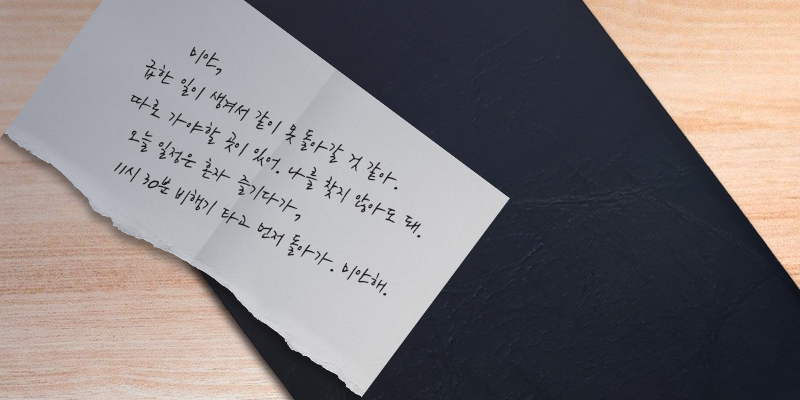 미안,
급한 일이 생겨서 같이 못 돌아갈 것 같아.
따로 가야할 곳이 있어. 나를 찾지 않아도 돼.
오늘 일정은 혼자 즐기다가,
11시 30분 비행기 타고 먼저 돌아가. 미안해.